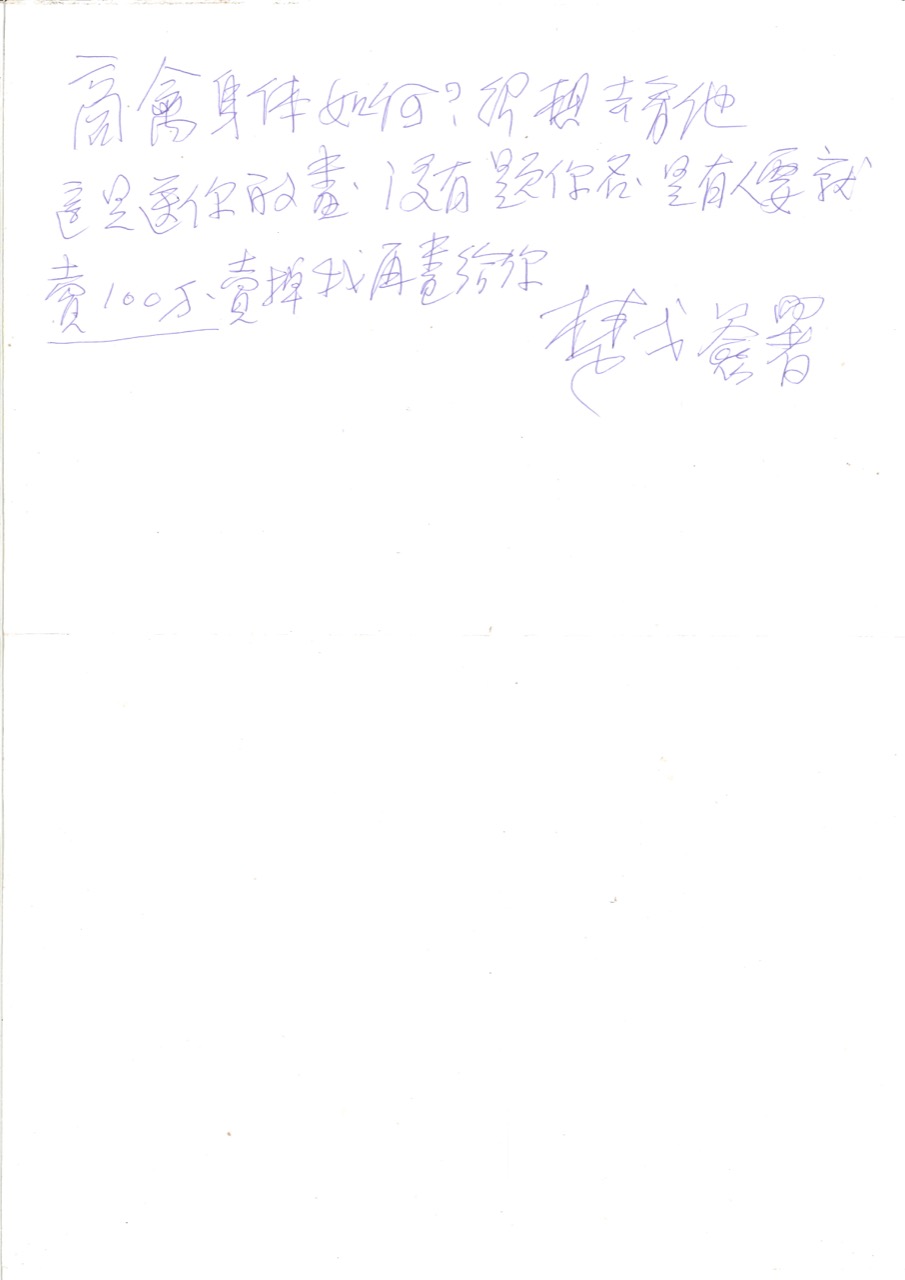 商禽身体如何?很想去看他
這是送你的畫 沒有題你名 是有人要就
賣100万、賣掉我再畫給你
楚戈簽署